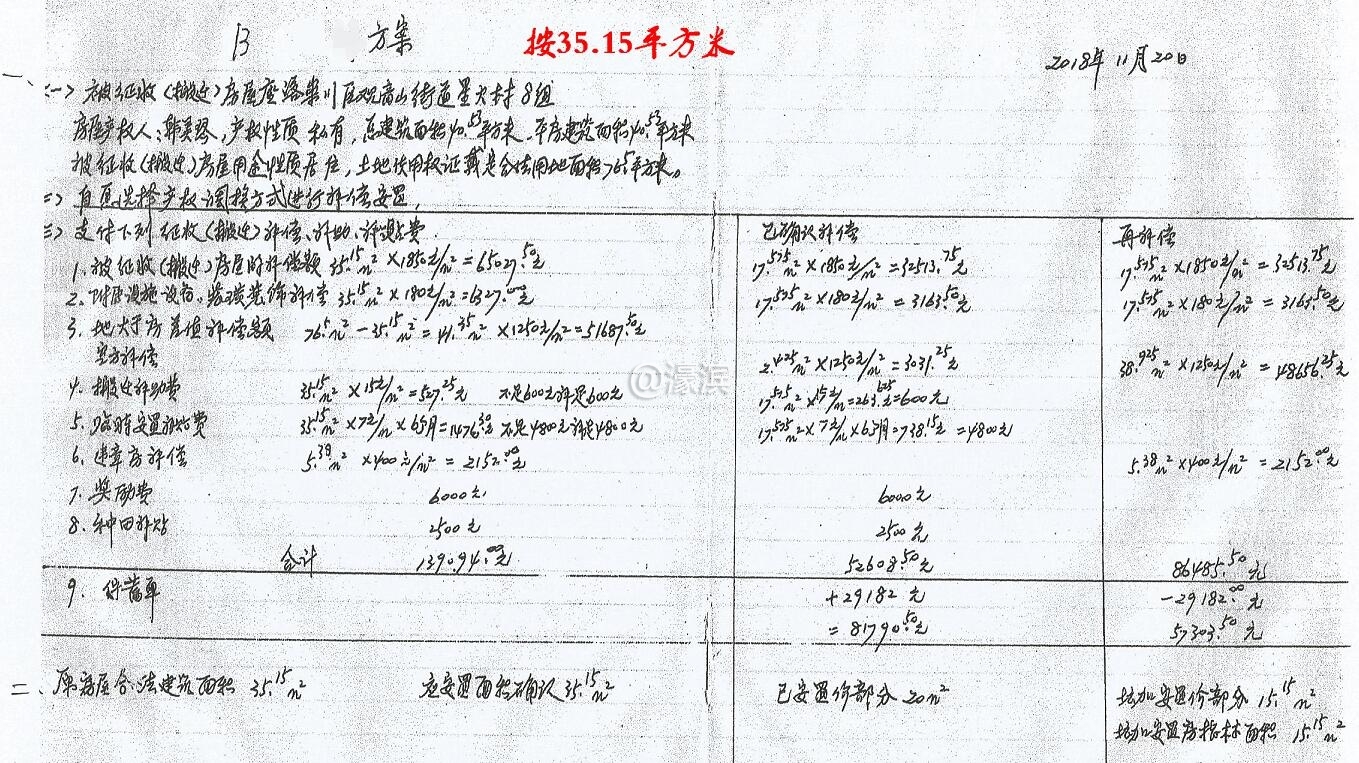 B 方案 按35.15平方米 2018年11月20日
一、<一> 被征收(搬迁)房屋座落崇川区观音山街道星火村8组
房屋产权人:韩美琴,产权性质 私有,总建筑面积40.53平方米,平房建筑面积40.53平方米
被征收(搬迁)房屋用途性质居住,土地使用权证或是合法用地面积76.5平方米。
二> 自愿选择产权调换方式进行补偿安置,
三> 支付下列征收(搬迁)补偿、补助、补贴费 已确认补偿 再补偿
1. 被征收(搬迁)房屋的补偿额 35.15m² ×1850元/m²=65027.50元 17.575m²×1850元/m²=32513.75元 17.575m²×1850元/m²=32513.75元
2. 附属设施设备、装潢装饰补偿 35.15m²×180元/m²=6327.00元 17.575m²×180元/m²=3163.50元 17.575m²×180元/m²=3163.50元
3. 地大于房差值补偿额 76.5m²-35.15m²=41.35m²×1250元/m²=51687.50元
空方补偿 2.425m²×1250元/m²=3031.25元 38.925m²×1250元/m²=48656.25元
4. 搬迁补助费 35.15m²×15元/m²=527.25元 不足600元补足600元 17.575m²×15元/m=263.625元=600元
5. 临时安置补助费 35.15m²×7元/m×6个月=1476.30元 不足4800元补足4800元 17.575m²×7元/m×6个月=738.15元=4800元
6. 违章房补偿 5.38m²×400元/m²=2152.00元 5.38m²×400元/m²=2152.00元
7. 奖励费 6000元 6000元
8. 种田补贴 2500元 2500元
合计 139094.00元 52608.50元 86485.50元
9. +29182元 -29182.00元
=81790.50元 57303.50元
二、原房屋合法建筑面积 35.15m² 应安置面积确认35.15m² 已安置价部分20m² 增加安置价部分15.15m²
增加安置房指标面积15.15m²
@濠滨